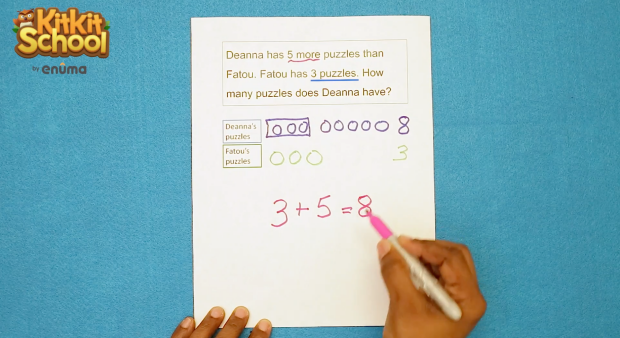 Kitkit
School
by enuma
Deanna has 5 more puzzles than
Fatou. Fatou has 3 puzzles. How
many puzzles does Deanna have?
Deanna's
puzzles
8
Fatou's
puzzles
3
3 + 5 = 8